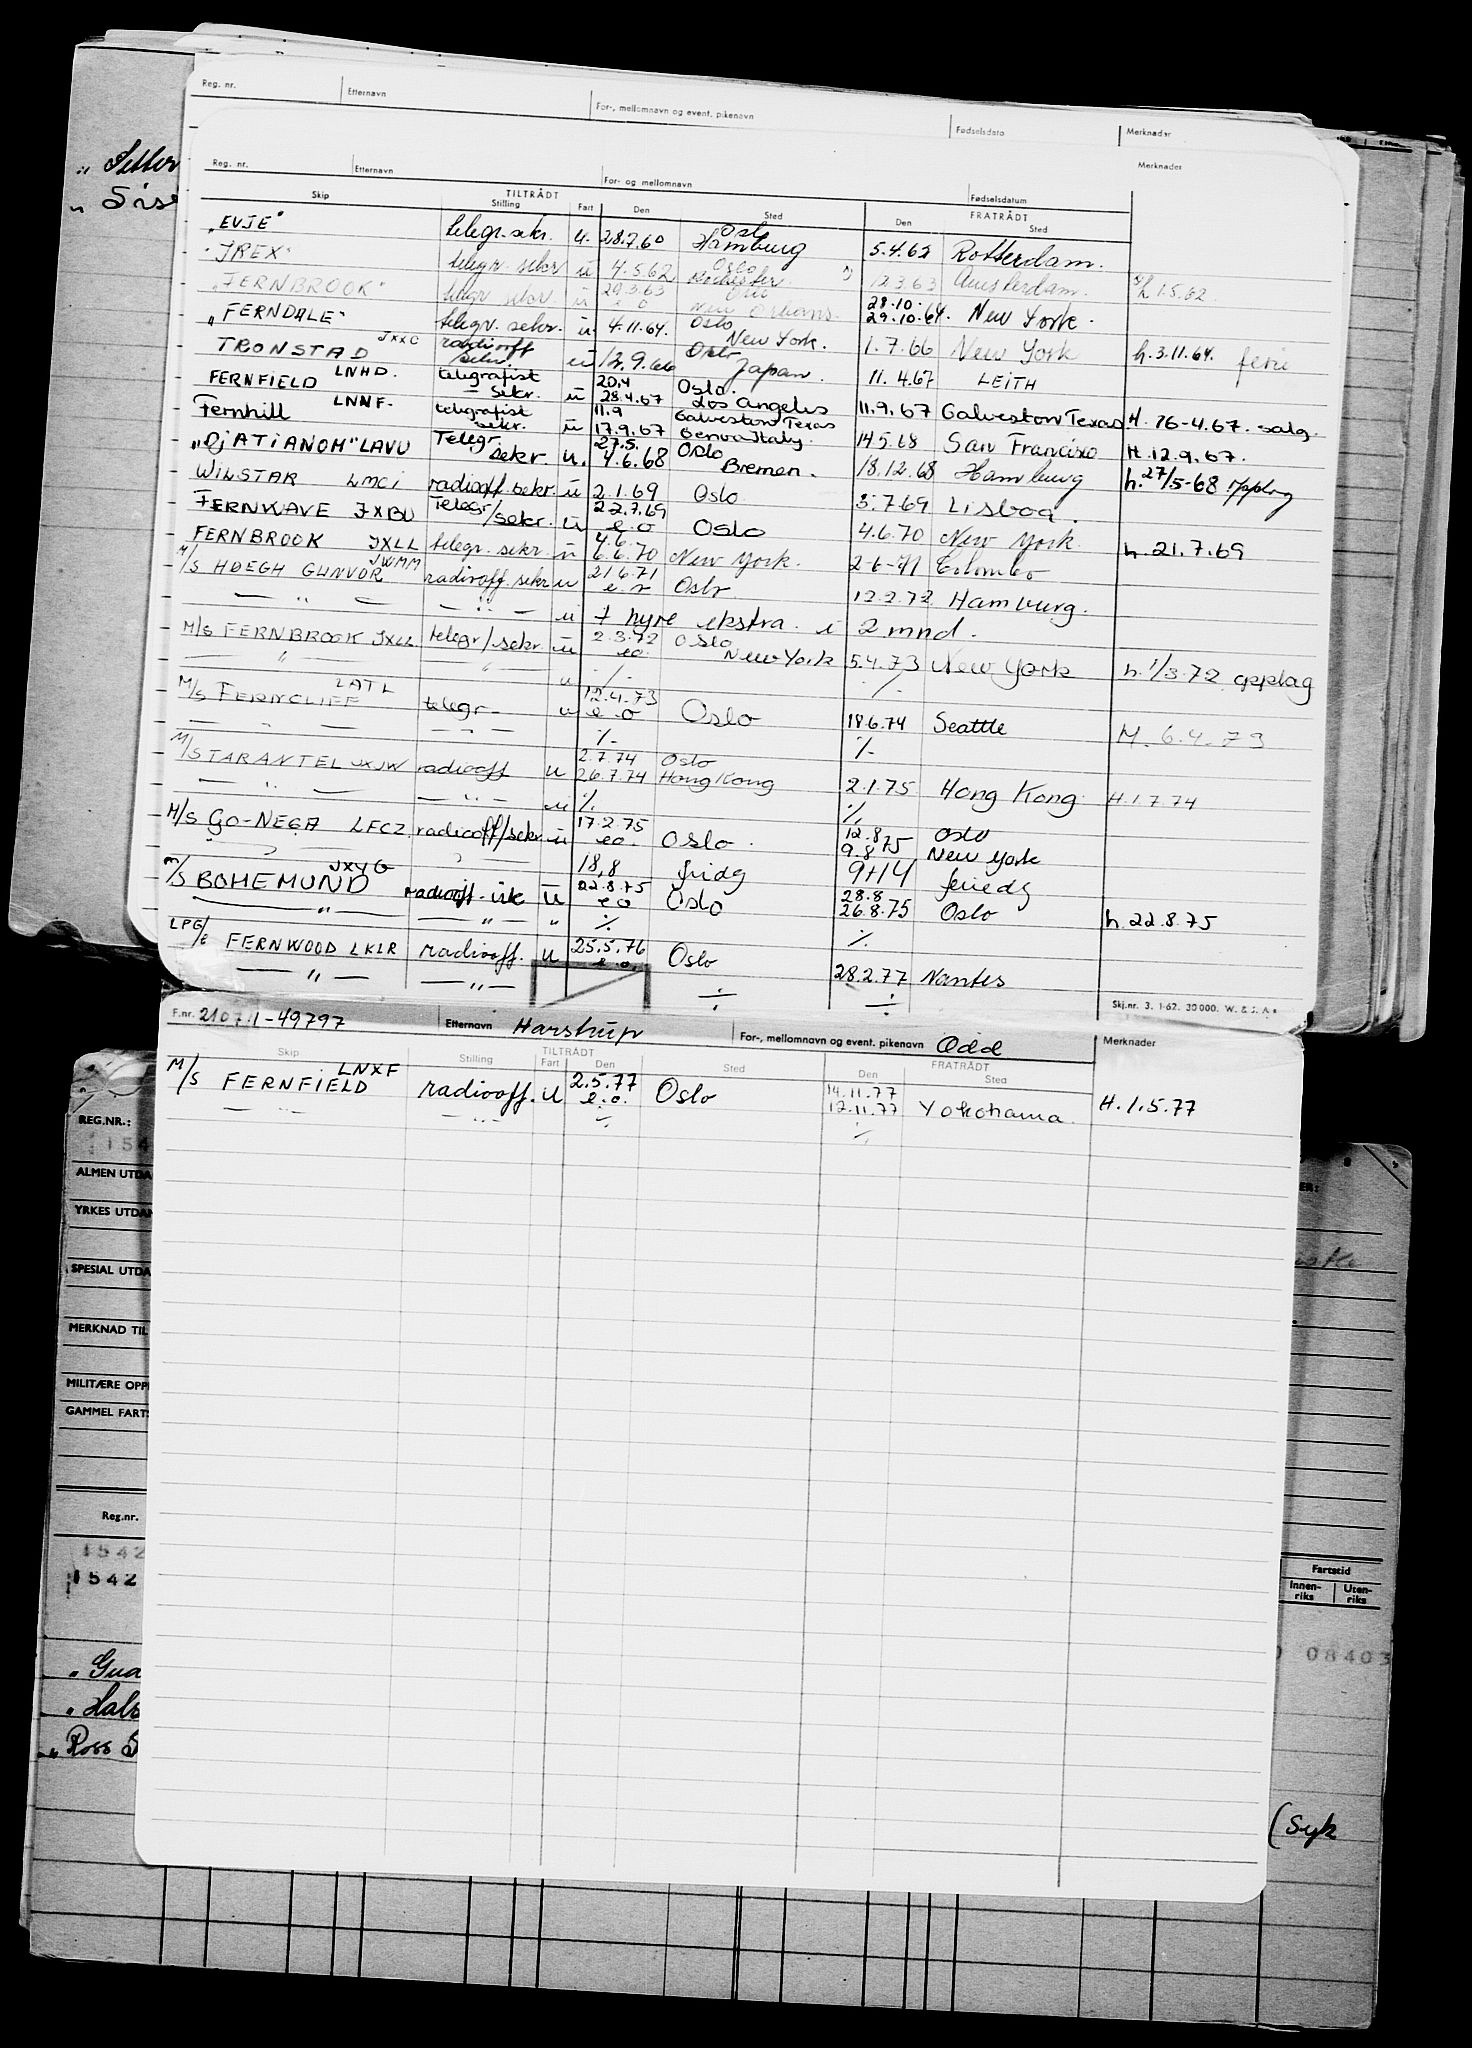 Reg. nr. Etternavn For-, mellomnavn og event. pikenavn Fødselsdato Merknader
Reg. nr. Etternavn For- og mellomnavn Fødselsdatum Merknader
Skip TILTRÅDT Stilling Fart Den Sted FRATRÅDT Den Sted
„EVJE" telegr. sekr. u. 28.7.60 Oslo Hamburg 5.4.62 Rotterdam.
"IREX" telegr. sekr u 4.5.62 Oslo Rochester 12.3.63 Amsterdam. h 1.5.62.
„FERNBROOK" telegr. sekr. u 29.3.63 e o Oslo New Orleans. 28.10. 29.10.64. New York.
„FERNDALE" telegr. sekr. u. 4.11.64. Oslo New York. 1.7.66 New York h. 3.11.64. ferie
TRONSTAD JXXC radiooff /sekr u 12.9.66 Oslo Japan. 11. 4.67 LEITH
FERNFIELD LNHD. telegrafist - sekr. u 20.4 28.4.67 Oslo. Los Angeles 11.9.67 Galveston Texas H. 16-4.67. salg.
Fernhill LNNF. telegrafist sekr. u 11.9 17.9.67 Galveston Texas Genva Italy. 14.5.68 San Francisco H. 12.9.67.
„DjATIANOM" LAVU Telegr. sekr u. 27.5. 4.6.68 Oslo Bremen. 18.12.68 Hamburg h. 27/5-68 opplag
WILSTAR LMCI radiooff. sekr. u 2.1.69 Oslo 3.7.69 Lisboa.
FERNWAVE JXBU Telegr /sekr. u 22.7.69 e. o Oslo 4.6.70 New York. h. 21.7.69
FERNBROOK JXLL telegr. sekr. u 4.6. 6.6.70 New York. 2-6-71 Colombo
M/S HØEGH GUNVOR JWMM radiooff. sekr u 21.6.71 e. o Oslo 12.2.72 Hamburg.
— " — — " — u 7 hyre ekstra. i 2 mnd.
M/S FERNBROOK JXLL telegr/sekr. u 2.3.72 eo. Oslo New York 5.4.73 New York h. 1/3.72 opplag
" " u ./. ./.
M/S FERNCLIFF LATL telegr- u 12.4.73 e. o Oslo 18.6.74 Seattle M. 6.4.73
— " — — " — ./. ./.
M/S TARANTEL JXJW radiooff u 2.7.74 26.7.74 Oslo Hong Kong 2.1.75 Hong Kong H. 1.7.74
— " — — " — u ./. ./.
M/S GO-NEGA LFCZ radiooff/sekr. u 17.2.75 eo. Oslo. 12.8 9.8.75 Oslo New York
" " 18,8 fridg 9+14 feriedg
M/S BOHEMUND JXYG radiooff. u 22.8.75 e o Oslo 28.8 26.8.75 Oslo h. 22.8.75
— " — — " — " ./. ./.
LPG/ FERNWOOD LKLR radiooff. u 25.5.76 e. o. Oslo 28.2.77 Nantes
— " — — " — ./. ./.
Skj.nr. 3. 1-62. 30 000. W. & S. A s
F.nr. 210711-49797 Etternavn Harstrup For-, mellomnavn og event. pikenavn Odd Merknader
Skip TILTRÅDT Stilling Fart Den Sted FRATRÅDT Den Sted
M/S FERNFIELD LNXF radiooff. u 2.5.77 e. o. Oslo 14.11.77 12.11.77 Yokohama. H. 1.5.77
— " — " ./. ./.
REG.NR.:
154
ALMEN UTDA
YRKES UTDAN
SPESIAL UTDA
MERKNAD TIL
MILITÆRE OPP
GAMMEL FARTS
Reg.nr.
1542
1542
Fartstid
Innenriks Utenriks
08403
„ Gua
„ Halv
„ Ross S
(Syk